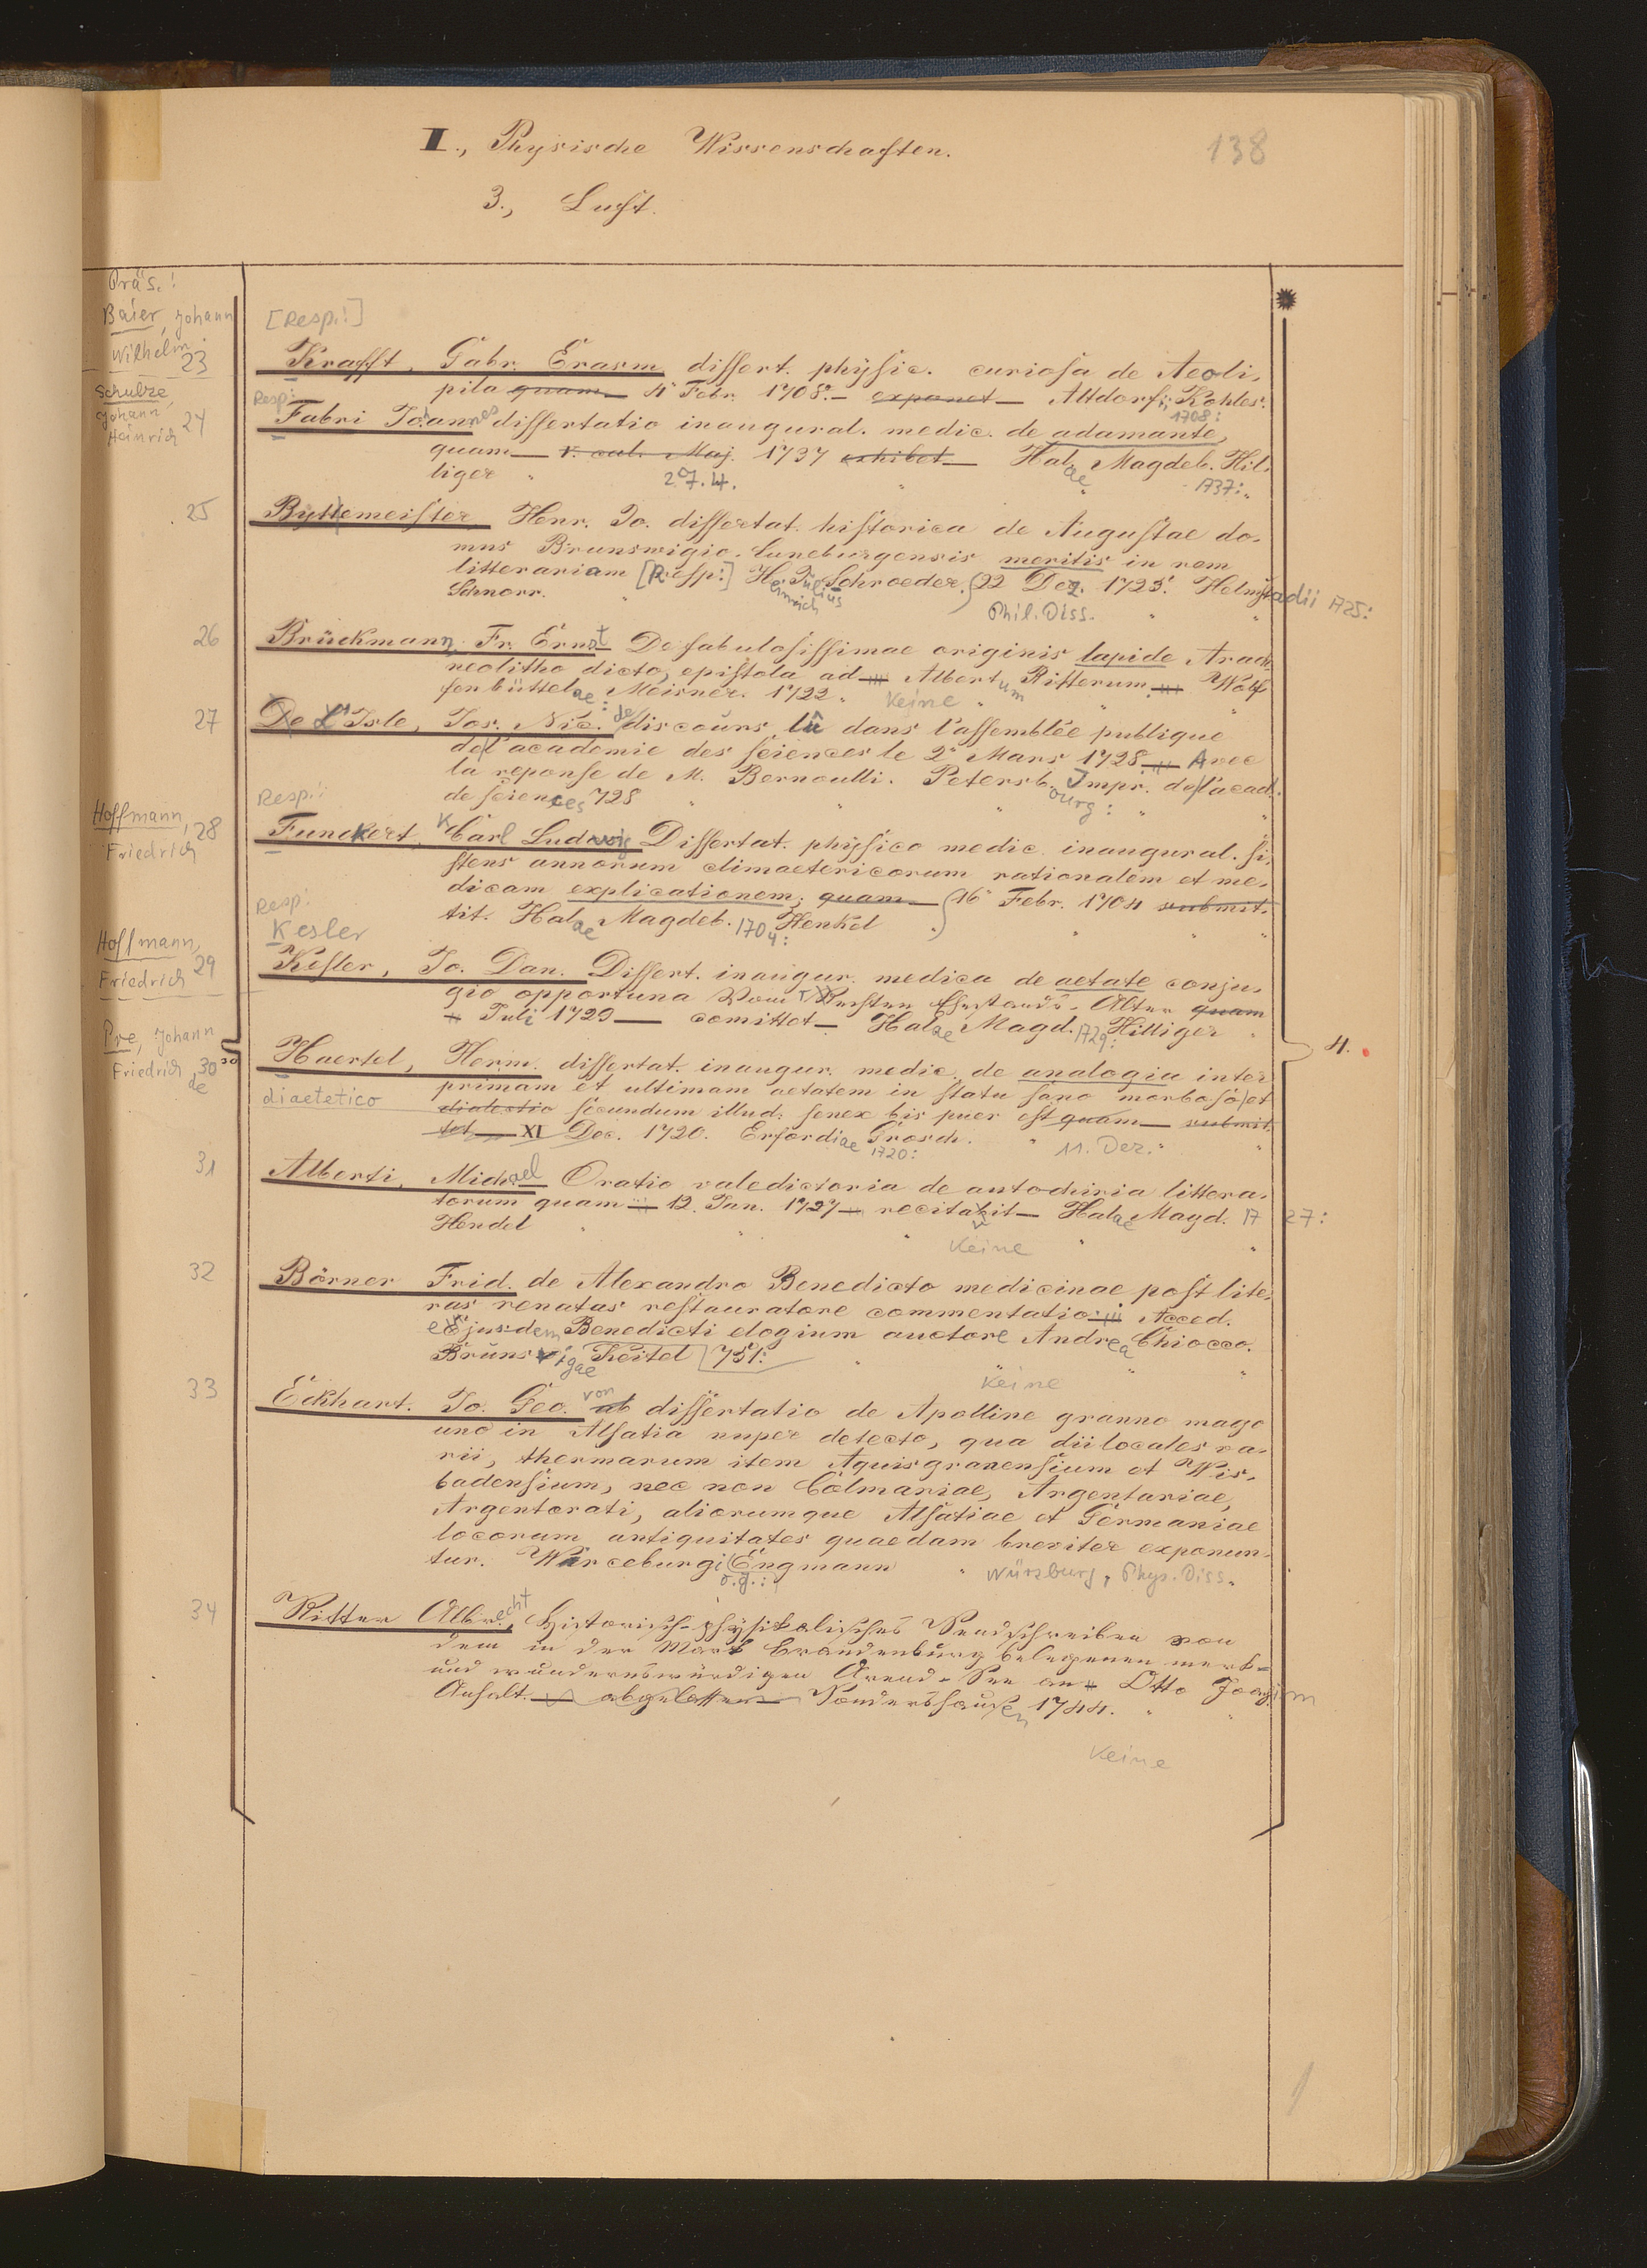 II., Physische Wissenschaften.
138
3., Luft.
Präs.:
Baier, Johann
Wilhelm.
23
[Resp.:]
Krafft, Gabr. Erasm dissert. physic. curiosa de Aeoli,
pila quam— 4 Febr. 1708.— exponet— Altdorfi; Kohles.
1708:
Schulze,
Johann
Heinrich
24
Resp:
Fabri Johannes dissertatio inaugural. medic. de adamante,
quam— V. cal. Maj. 1737 exhibet— Halae Magdeb. Hil,
liger " 27.4. " " 1737: "
25
Byttemeister Henr. Jo. dissertat. historica de Augustae do,
mus Brunsvigio. Luneburgensis meritis in rem
litterariam [Resp:] Heinrich Julius Schroeder. (22 Dez. 1725. Helmstadii 1725:
Schnorr. " Phil. Diss. " "
26
Brückmann, Fr. Ernst De fabulosissimae originis lapide Arach
neolitho dicto, epistola ad Albertum Ritterum. Wolf
fenbüttelae: Meisner. 1722. Keine " " "
27
De L'Isle, Jos. Nic. de discours lû dans l'assemblée publique
de l'academie des sciences le 2 Mars 1728 Avec
la reponse de M. Bernoulli. Petersbourg: Impr. de l'acad.
de sciences 728 " " " " "
Hoffmann,
Friedrich
28
Resp.:
Funckert, Karl Ludwig Dissertat. physico medic. inaugural. si,
stens annorum climactericorum rationalem et me,
dicam explicationem, quam— (16 Febr. 1704 submit,
tit. Halae Magdeb. 1704: Henkel .) " " "
Hoffmann,
Friedrich
29
Resp:
Kesler
Kesler, Jo. Dan. Dissert. inaugur. medica de aetate conju,
gio opportuna Vom rechten Ehestands-Alter quam
Juli 1729— comittet— Halae Magd. 1729: Hilliger "
Pre, Johann
Friedrich de
30
4.
Haertel, Herm. dissertat. inaugur. medic. de analogia inter
primam et ultimam aetatem in statu sano morboso et
diaetetico
dialectio secundum illud: senex bis puer est quam— submit,
tet— XI Dec. 1720. Erfordiae 1720: Grosch. " 11. Dez. " "
31
Alberti, Michael Oratio valedictoria de autochiria littera,
torum quam 12. Jan. 1727 recitavit— Halae Magd. 1727:
Hendel " " " Keine " "
32
Börner Frid. de Alexandro Benedicto medicinae post lite,
ras renatas restauratore commentatio: Acced.
ejusdem Benedicti elogium auctore Andrea Chiocco.
Brunsvigae Keitel 751: " " Keine " "
33
Eckhart. Jo. Geo. von ab dissertatio de Apolline granno mago
uno in Alsatia nuper detecto, qua dii locales va,
rii, thermarum item Aquisgranensium et Wis,
badensium, nec non Colmariae, Argentariae,
Argentorati, aliorumque Alsatiae et Germaniae
locorum antiquitates quaedam breviter exponun,
tur. Wirceburgi o.J.: Engmann " Würzburg, Phys. Diss. "
34
Ritter Albrecht, Historisch-physikalisches Sendschreiben von
dem in der Mark Brandenburg belegenen merk=
und wundernswürdigen Arend-See an Otto Joachim
Anhalt.— abgelassen— Sondershausen 1744. " "
Keine